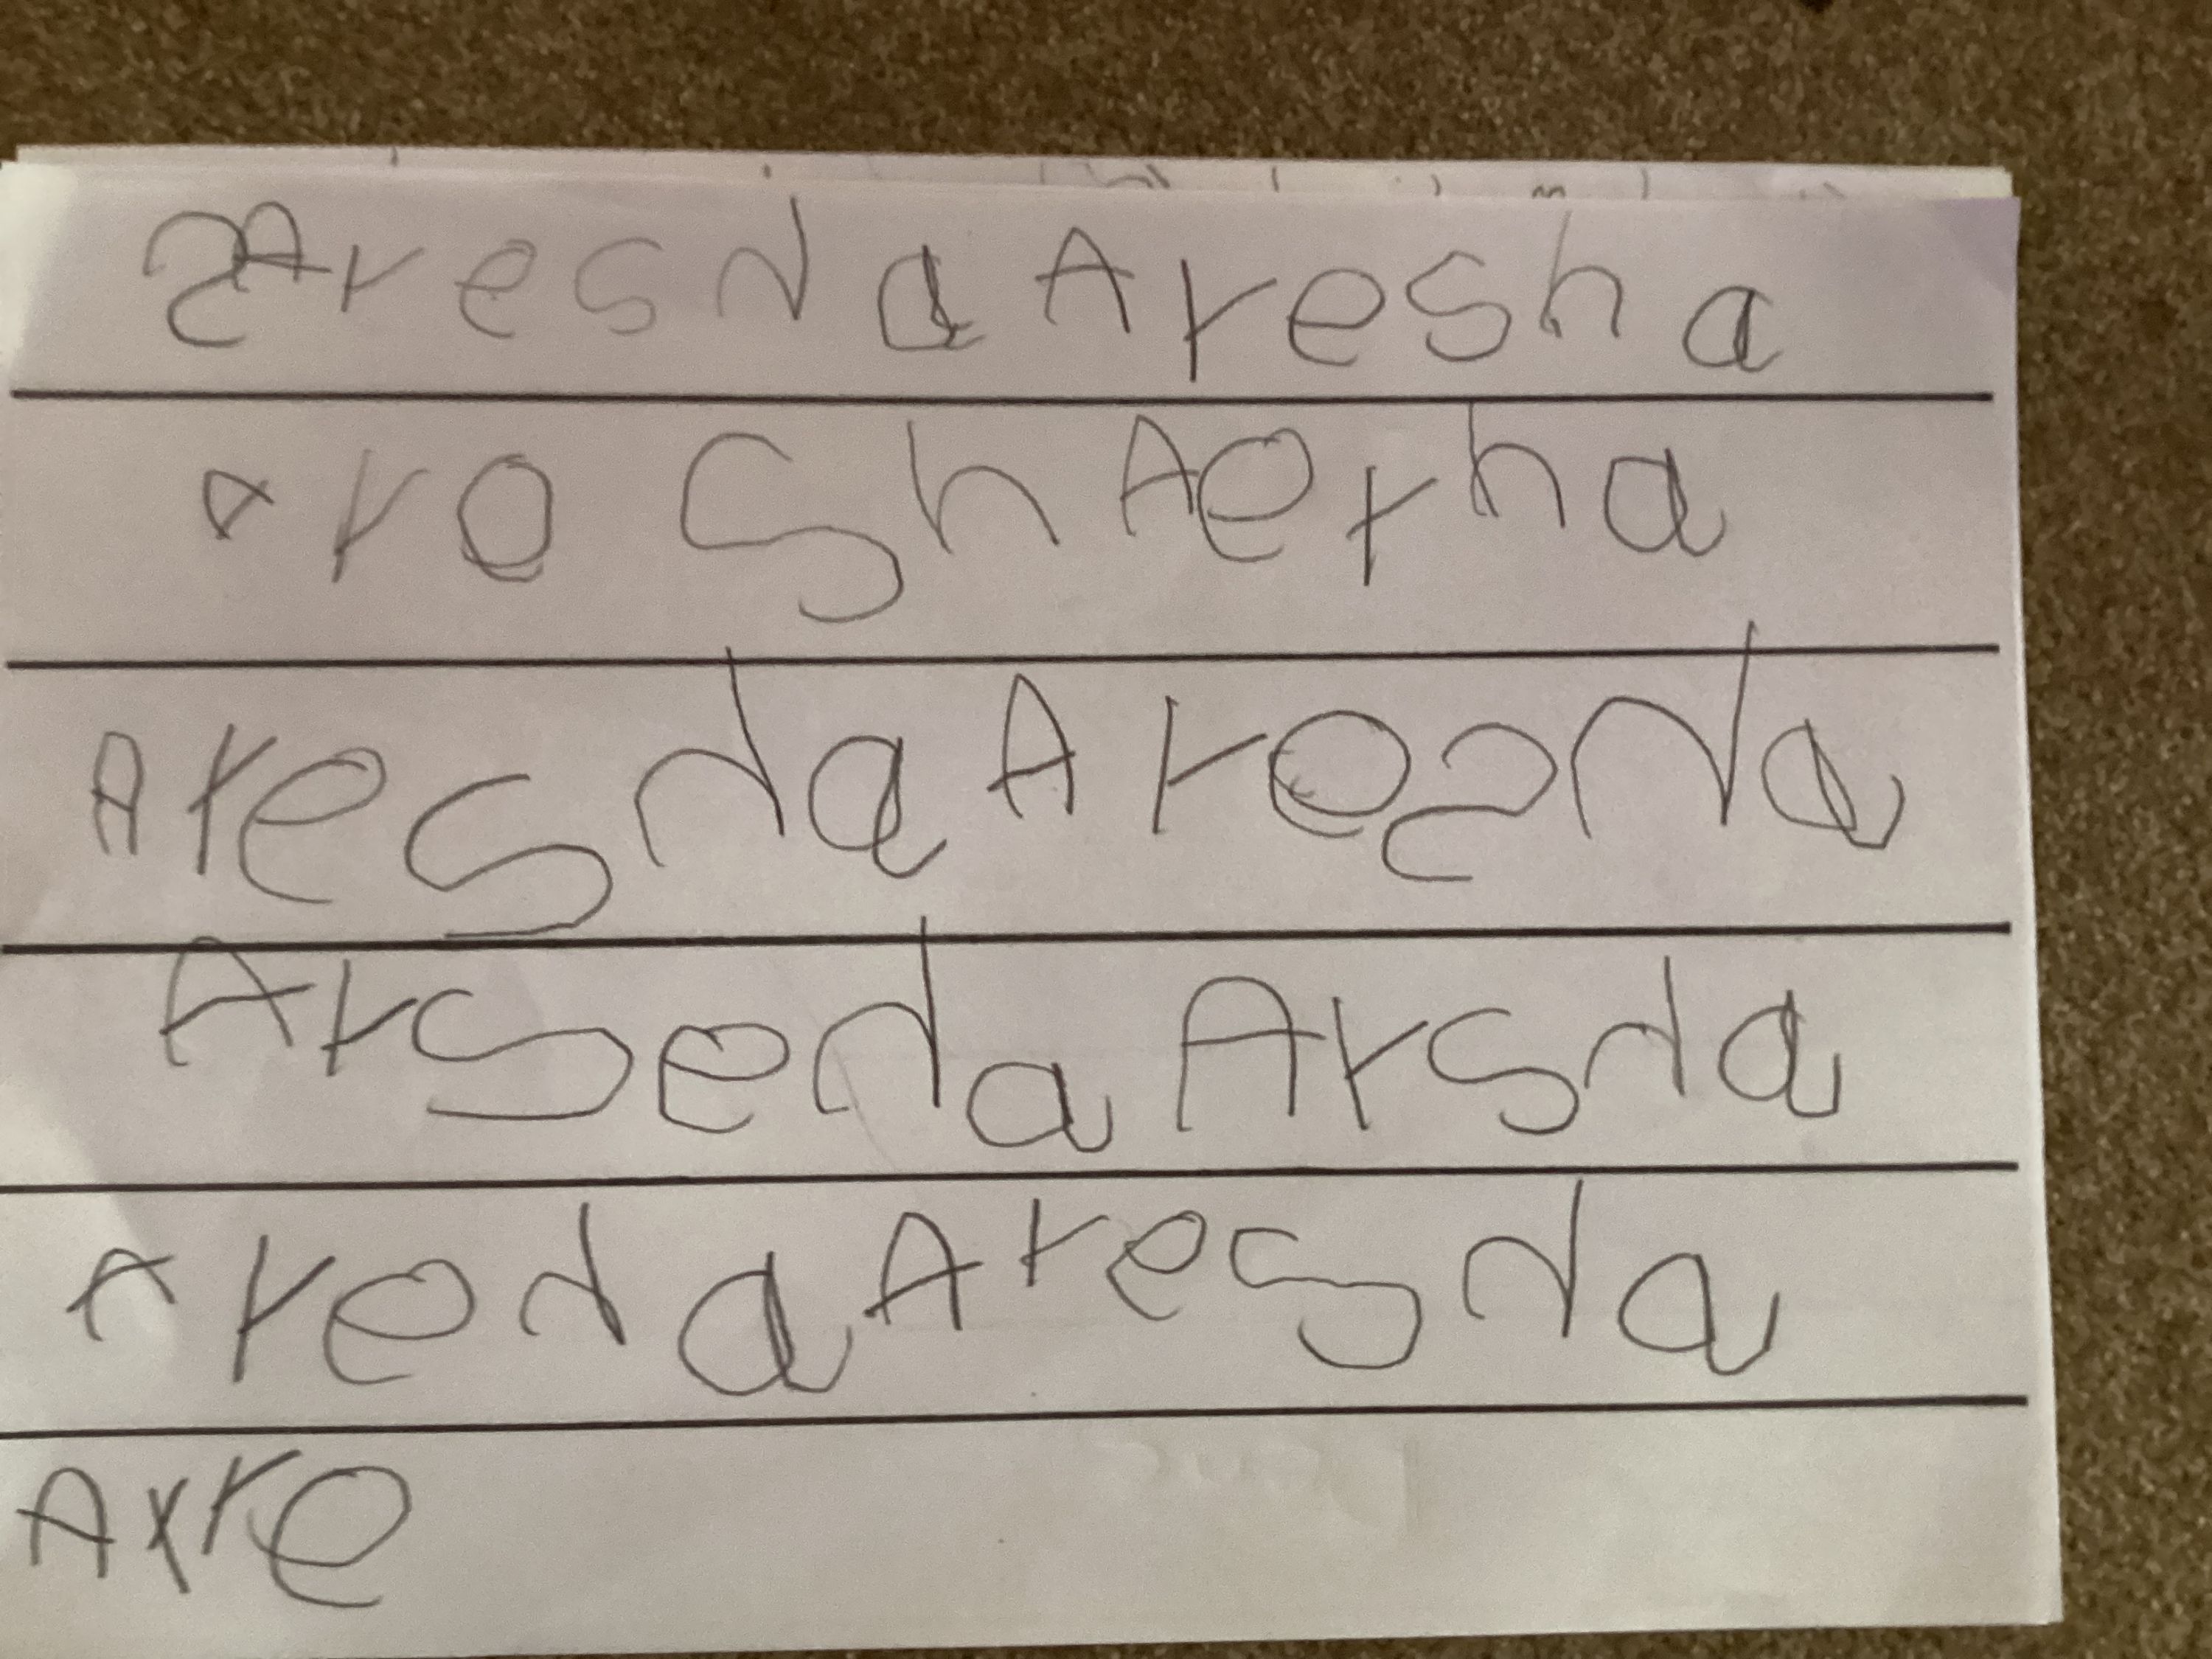 Aresha Aresha
aro sh Aerha
Aresha Aresha
Arseha Arsha
Areha Aresha
Axre